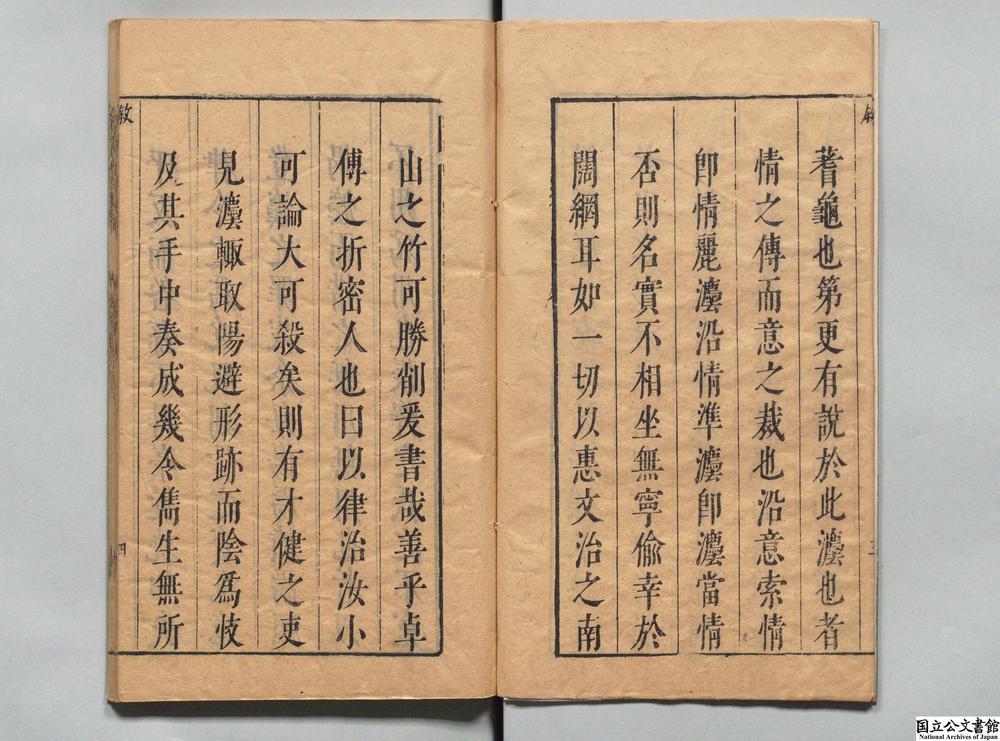 敘
蓍龜也第更有說於此灋也者
情之傳而意之裁也沿意索情
卽情麗灋沿情準灋卽灋當情
否則名實不相坐無寧偷幸於
闊網耳如一切以惠文治之南
三
山之竹可勝削爰書哉善乎卓
傅之折密人也曰以律治汝小
可論大可殺矣則有才健之吏
見灋輙取陽避形跡而陰爲忮
及其手中奏成幾令雋生無所
敘
四
国立公文書館
National Archives of Japan